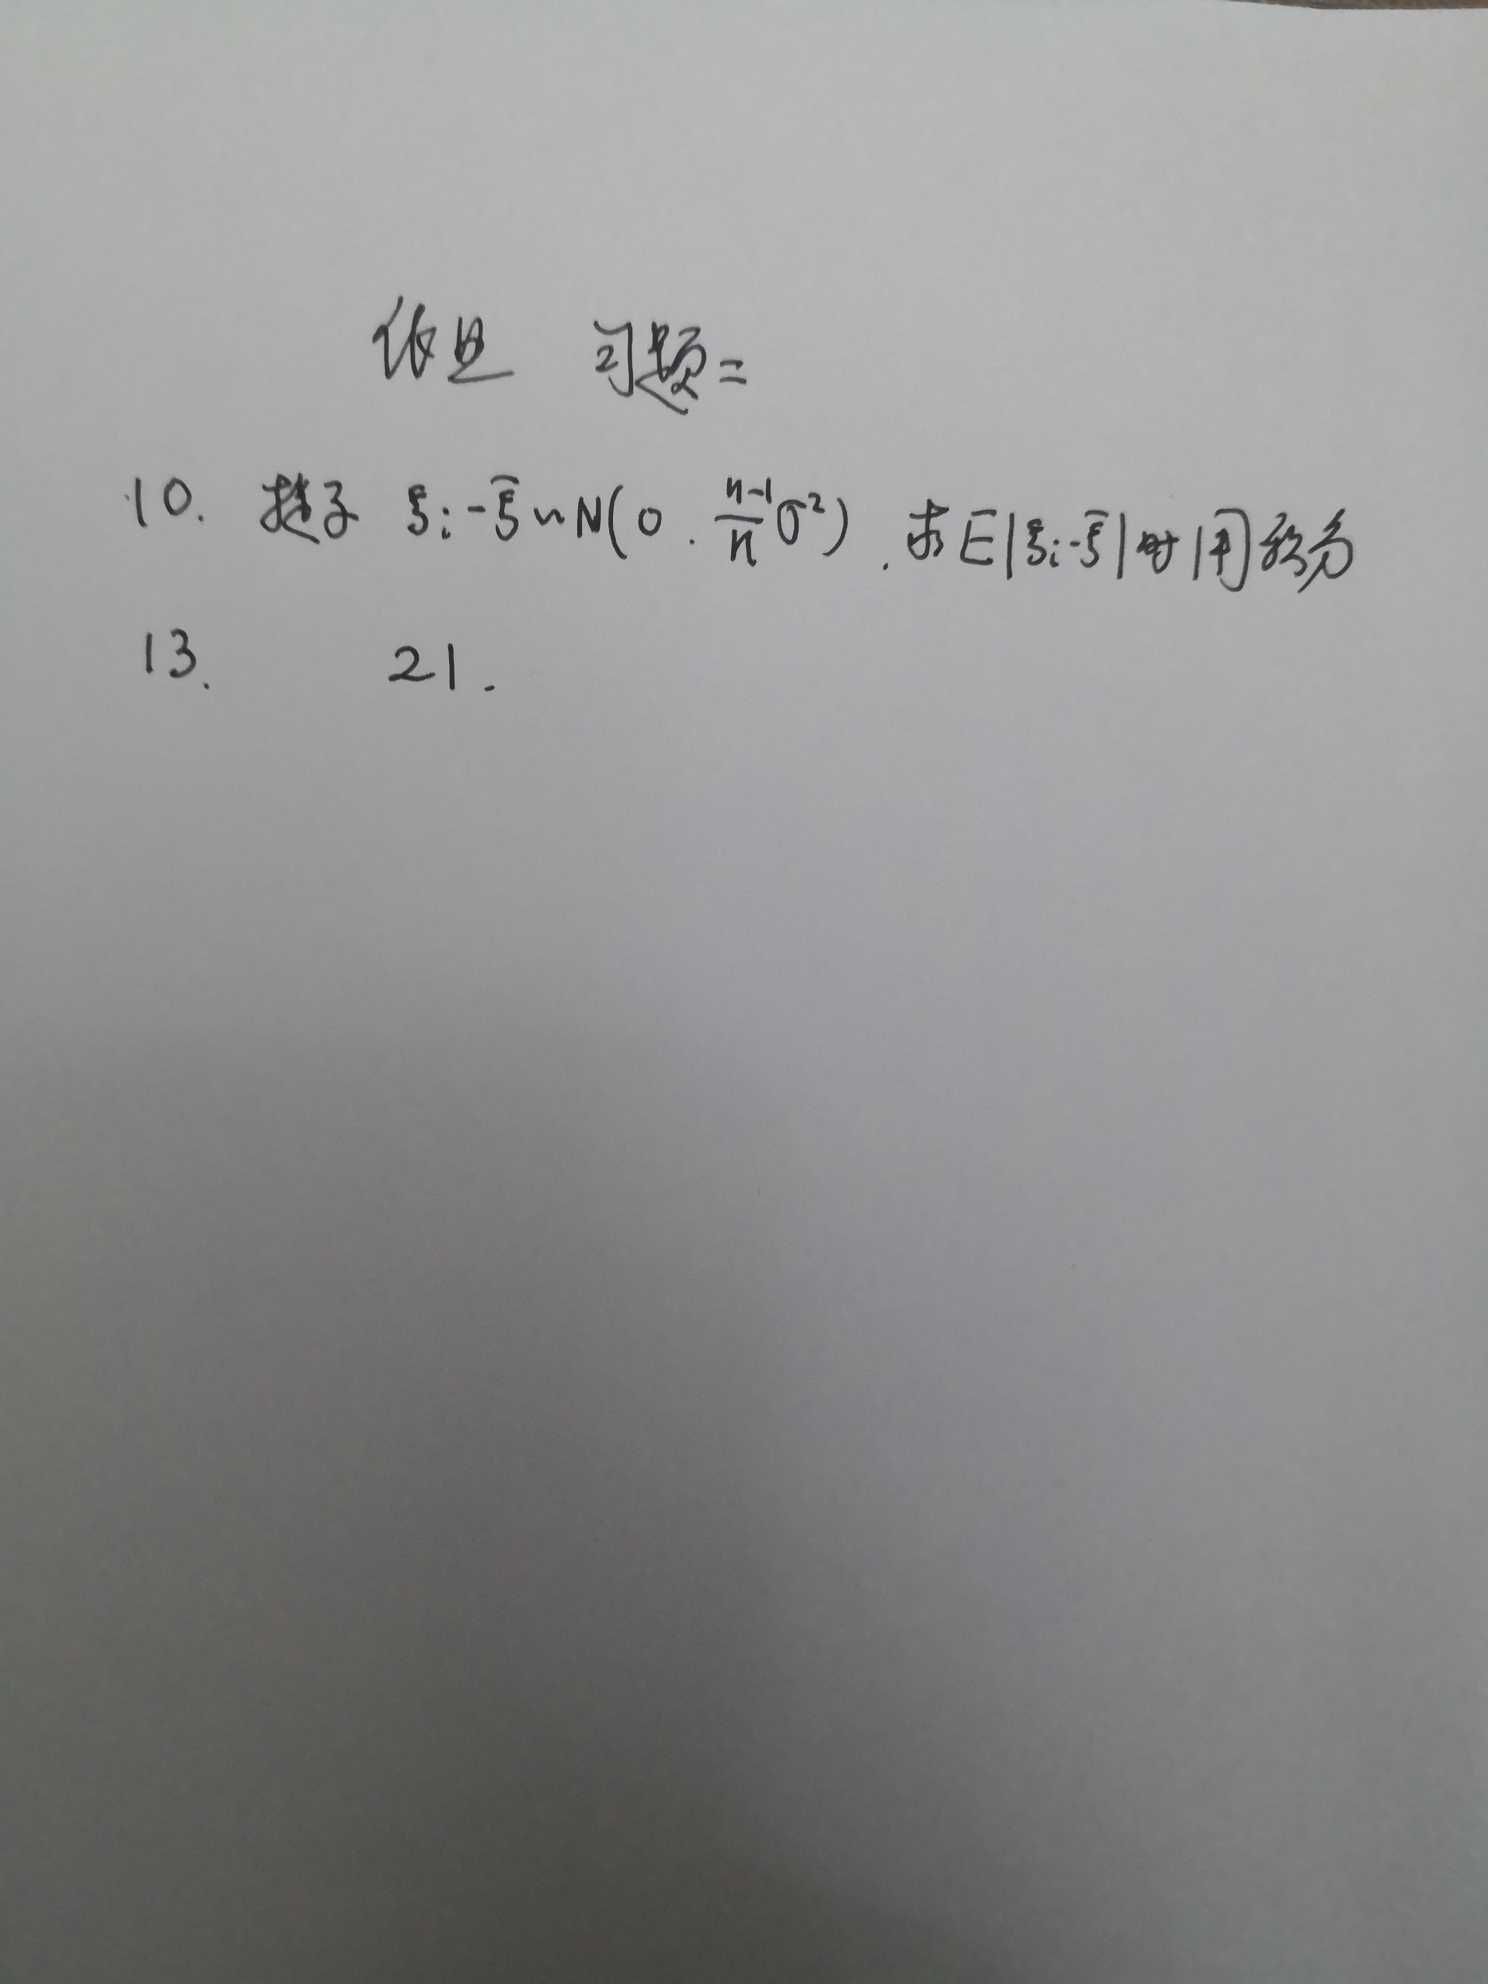 作业 习题二
10. 提示 ξi-ξ̄~N(0. n-1/n σ²). 求E|ξi-ξ̄|时用积分
13. 21.